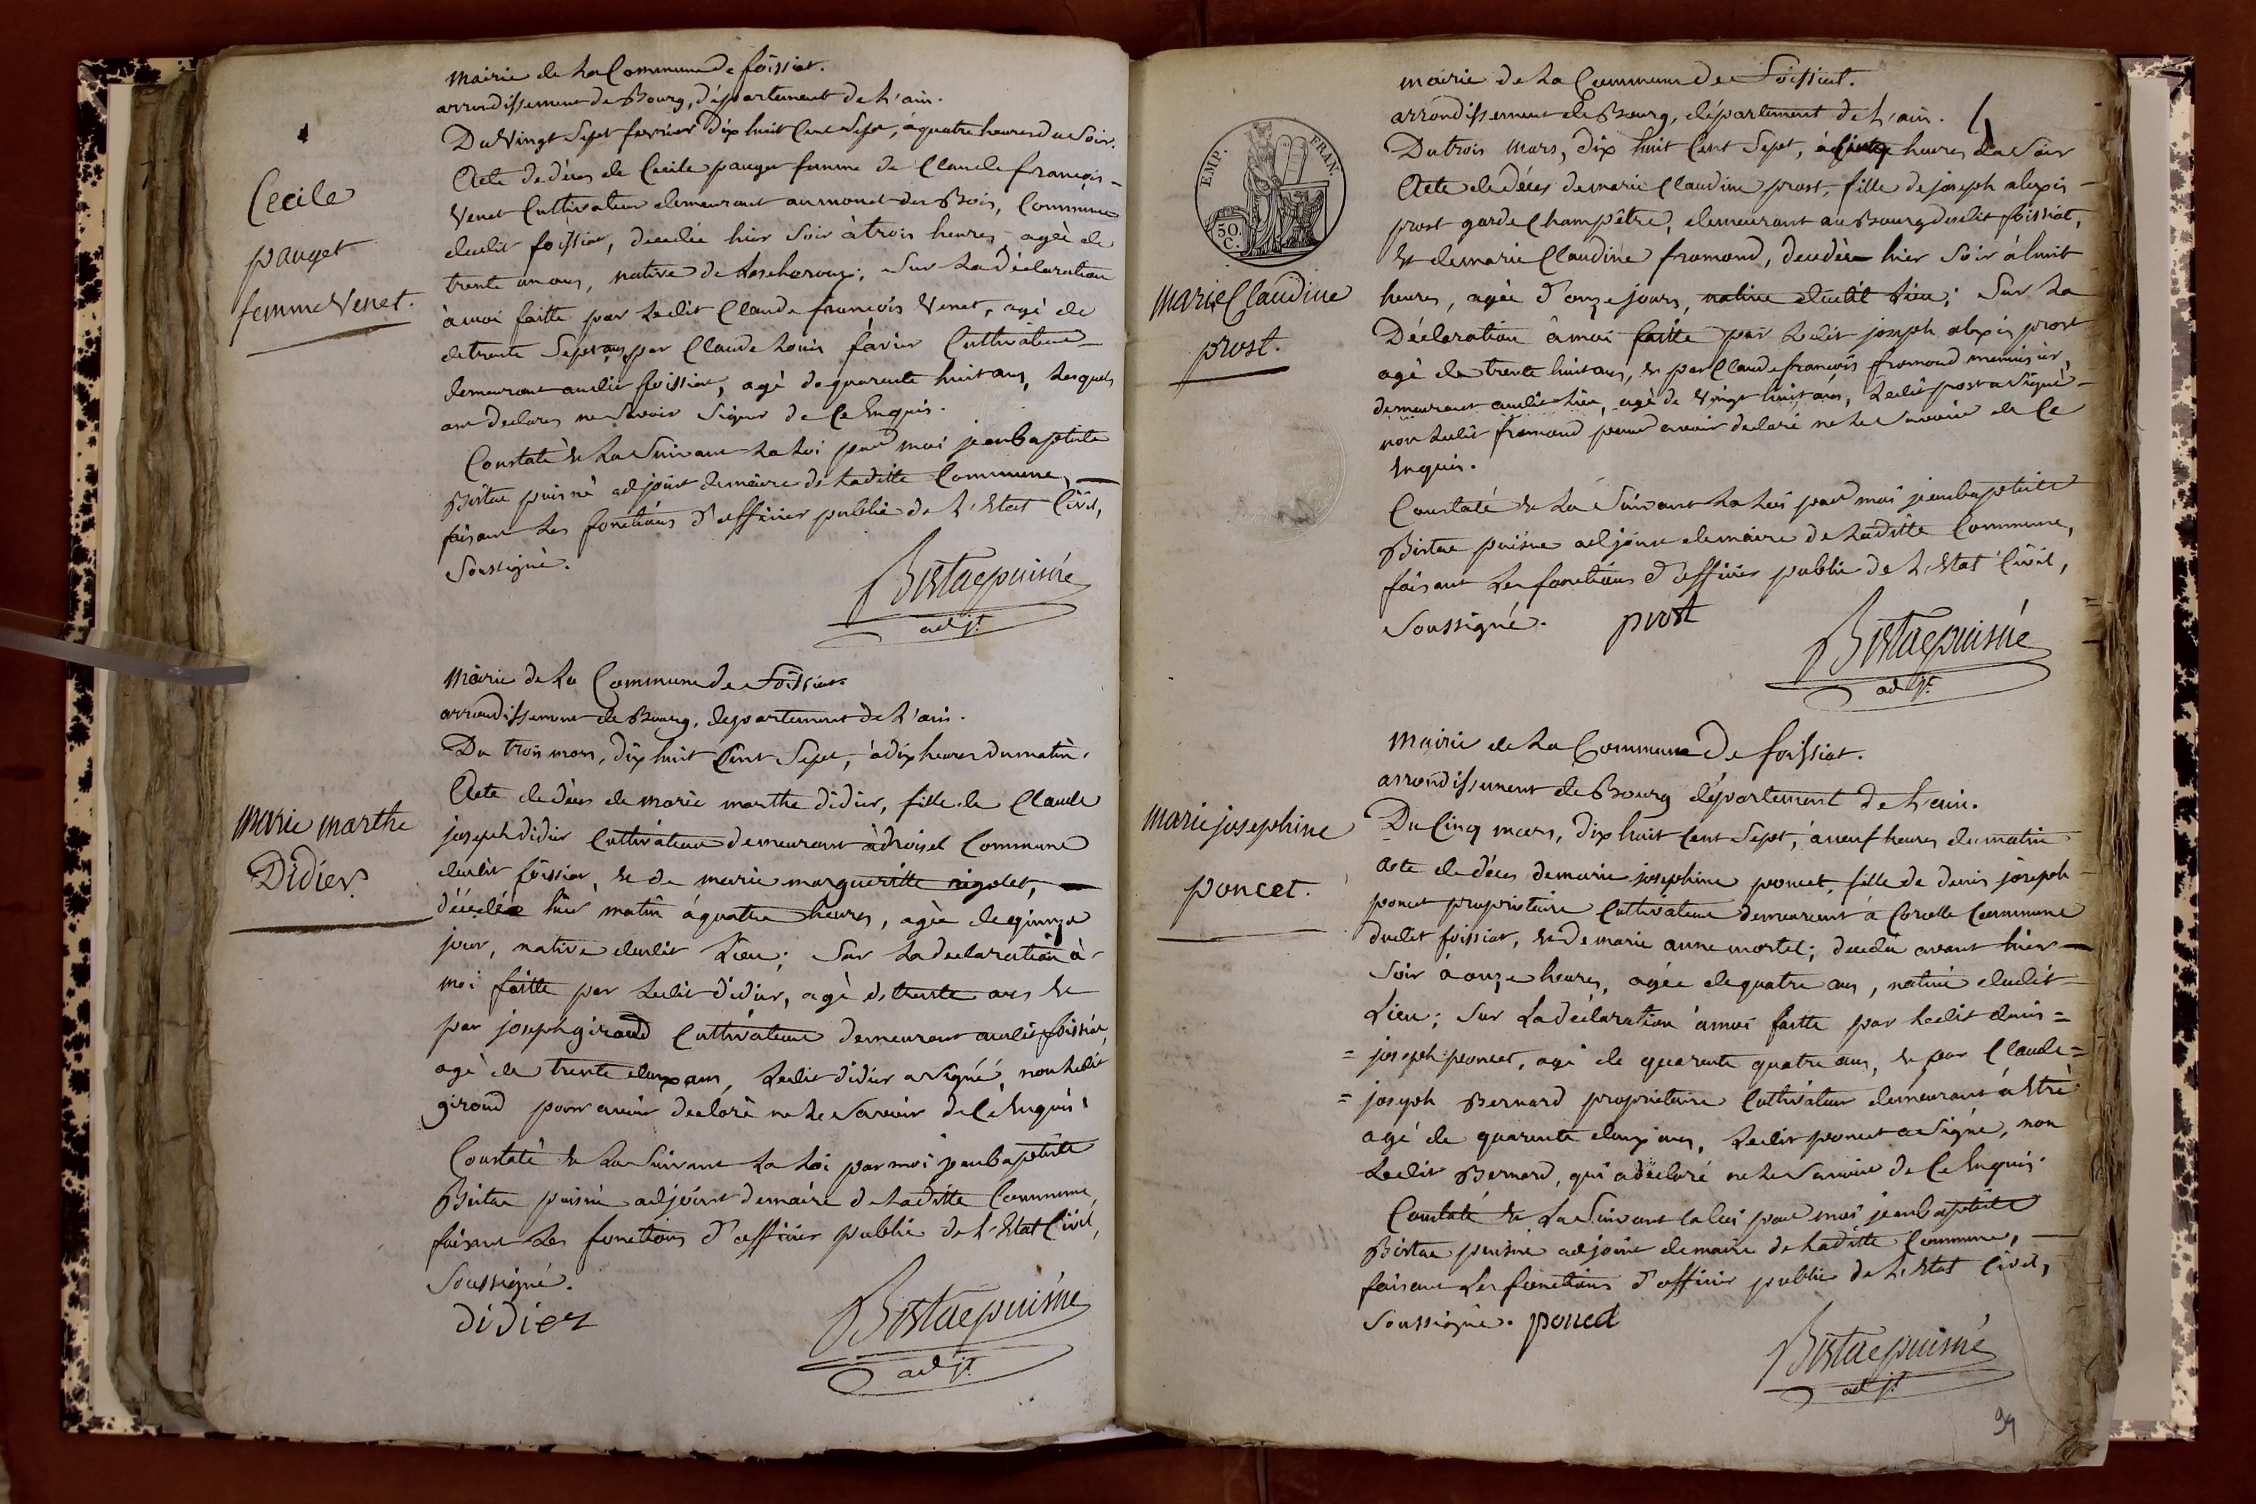 Mairie de La Commune de foissiat.
arrondissement de Bourg, département de L'ain.
Du Vingt Sept fevrier dix huit Cent Sept, à quatre heures du Soir.
Cecile
pauget
femme Venet.
Acte de déces de Cecile pauget femme de Claude françois =
Venet Cultivateur demeurant au monet des Bois, Commune
dudit foissiat, decedée hier Soir à trois heures, agée de
trente un ans, native de Lescheroux; Sur La déclaration
à moi faitte par Ledit Claude françois Venet, agé de
de trente Sept ans, par Claude Louis favier Cultivateur
demeurant audit foissiat, agé de quarante huit ans, Lesquels
ont declarés ne Savoir Signer de Ce Enquis.
Constaté et La Suivant La Loi par moi jean baptiste
Bistac puisné adjoint de maire de Laditte Commune,
faisant Les fonctions d'officier public de L'Etat Civil,
Soussigné.
Bistac puisné
adjt.
Mairie de La Commune de Foissiat.
arrondissement de Bourg, departement de L'ain.
Du trois mars, dix huit Cent Sept, à dix heures du matin.
Marie marthe
Didier
Acte de déces de marie marthe didier, fille de Claude
joseph didier Cultivateur demeurant à droisel Commune
dudit foissiat, et de marie margueritte rigolet,
décedée hier matin à quatre heures, agée de quinze
jour, native dudit Lieu; Sur La declaration à
moi faitte par Ledit didier, agé de trente ans et
par joseph giraud Cultivateur demeurant audit foissiat,
agé de trente deux ans, Ledit didier a Signé, non Ledit
giroud pour avoir declaré ne Le Savoir de Ce Enquis.
Constaté et La Suivant La Loi par moi jean baptiste
Bistac puisné adjoint de maire de Laditte Commune,
faisant Les fonctions d'officier public de L'Etat Civil,
Soussigné.
didier
Bistac puisné
adjt.
mairie de La Commune de Foissiat.
arrondissement de Bourg, département de L'ain.
EMP. FRAN.
50.
C.
Du trois Mars, dix huit Cent Sept, à heures du Soir
Marie Claudine
prost.
Acte de déces de marie Claudine prost, fille de joseph alexis
prost garde Champêtre, demeurant au Bourg dudit foissiat,
et de marie Claudine fromond, decedée hier Soir à huit
heures, agée d'onze jours, native dudit Lieu; Sur La
Déclaration à moi faitte par Ledit joseph alexis prost
agé de trente huit ans, et par Claude françois fromond menuisier,
demeurant audit Lieu, agé de Vingt huit ans, Ledit prost a Signé
non Ledit fromond pour avoir declaré ne Le Savoir de Ce
Enquis.
Constaté et La Suivant La Loi par moi jean baptiste
Bistac puisné adjoint de maire de Laditte Commune,
faisant Les fonctions d'officier public de L'Etat Civil,
Soussigné. prost
Bistac puisné
adjt.
Mairie de La Commune De foissiat.
arrondissement de Bourg département de L'ain.
Du Cinq mars, dix huit Cent Sept, à neuf heures du matin
marie josephine
poncet.
acte de déces de marie josephine poncet, fille de denis joseph
poncet propriétaire Cultivateur demeurant à Corcelle Commune
dudit foissiat, et de marie anne mortel; decedée avant hier
Soir à onze heures, agée de quatre ans, native dudit
Lieu; Sur La déclaration à moi faitte par Ledit denis =
= joseph poncet, agé de quarante quatre ans, et par Claude =
= joseph Bernard propriétaire Cultivateur demeurant à Etré
agé de quarante deux ans, Ledit poncet a Signé, non
Ledit Bernard, qui a déclaré ne Le Savoir de Ce Enquis.
Constaté et La Suivant La Loi par moi jean baptiste
Bistac puisné adjoint de maire de Laditte Commune,
faisant Les fonctions d'officier public de L'Etat Civil,
Soussigné. poncet
Bistac puisné
adjt.